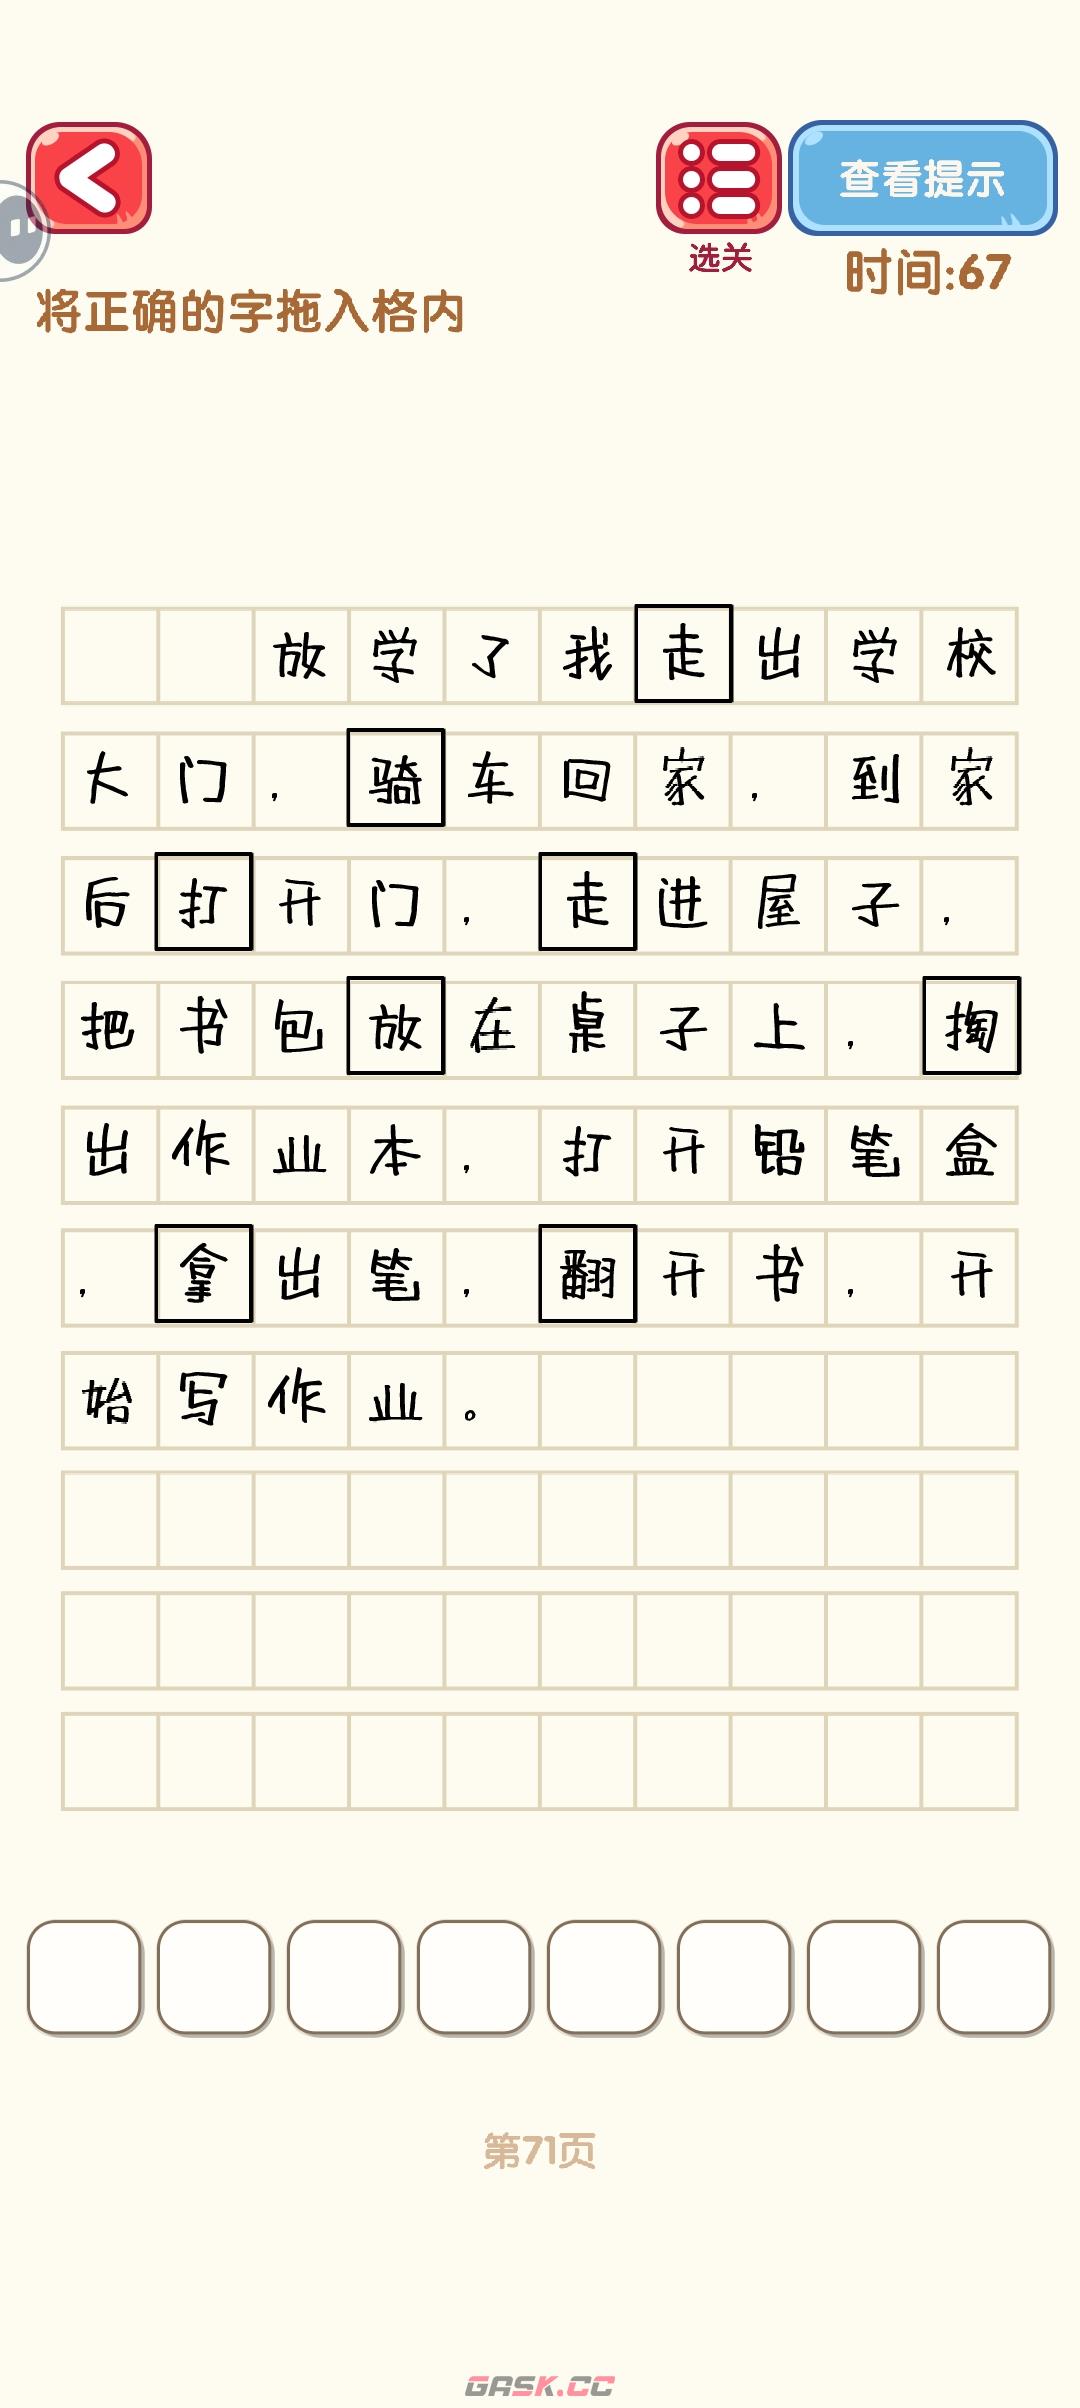 查看提示
选关
时间:67
将正确的字拖入格内
放学了我走出学校
大门，骑车回家，到家
后打开门，走进屋子，
把书包放在桌子上，掏
出作业本，打开铅笔盒
，拿出笔，翻开书，开
始写作业。
第71页
GASK.CC